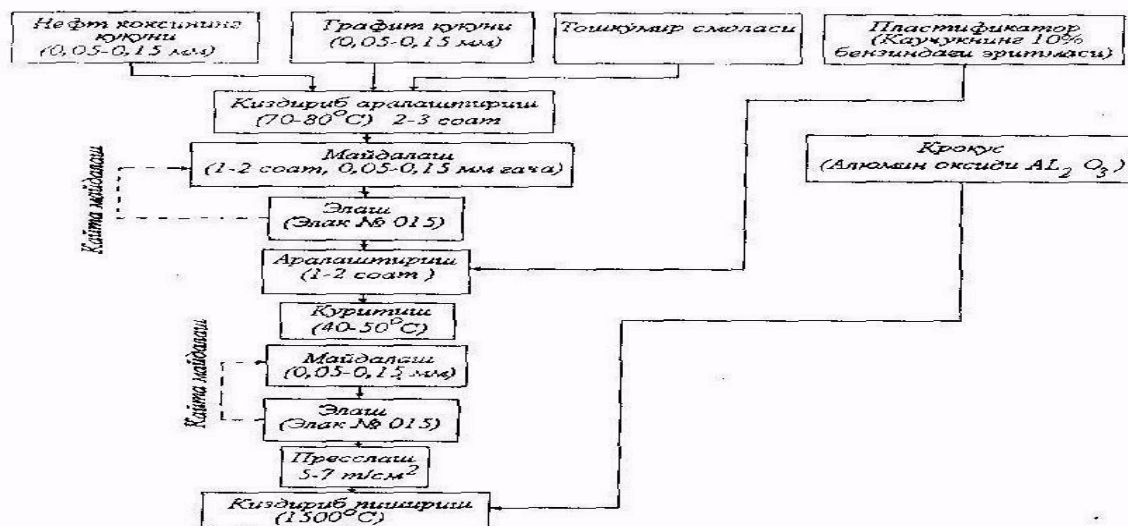 Нефт коксининг
кукуни
(0,05-0,15 мм)
Графит кукуни
(0,05-0,15 мм)
Тошкумир смоласи
Пластификатор
(Каучукнинг 10%
бензиндаги эритмаси)
Киздириб аралаштириш
(70-80°С) 2-3 соат
Крокус
(Алюмин оксиди AL₂ O₃)
Майдалаш
(1-2 соат, 0,05-0,15 мм гача)
Кайта майдалаш
Элаш
(Элак № 015)
Аралаштириш
(1-2 соат)
Куритиш
(40-50°С)
Майдалаш
(0,05-0,15 мм)
Кайта майдалаш
Элаш
(Элак № 015)
Пресслаш
5-7 т/см²
Киздириб пишириш
(1500°С)